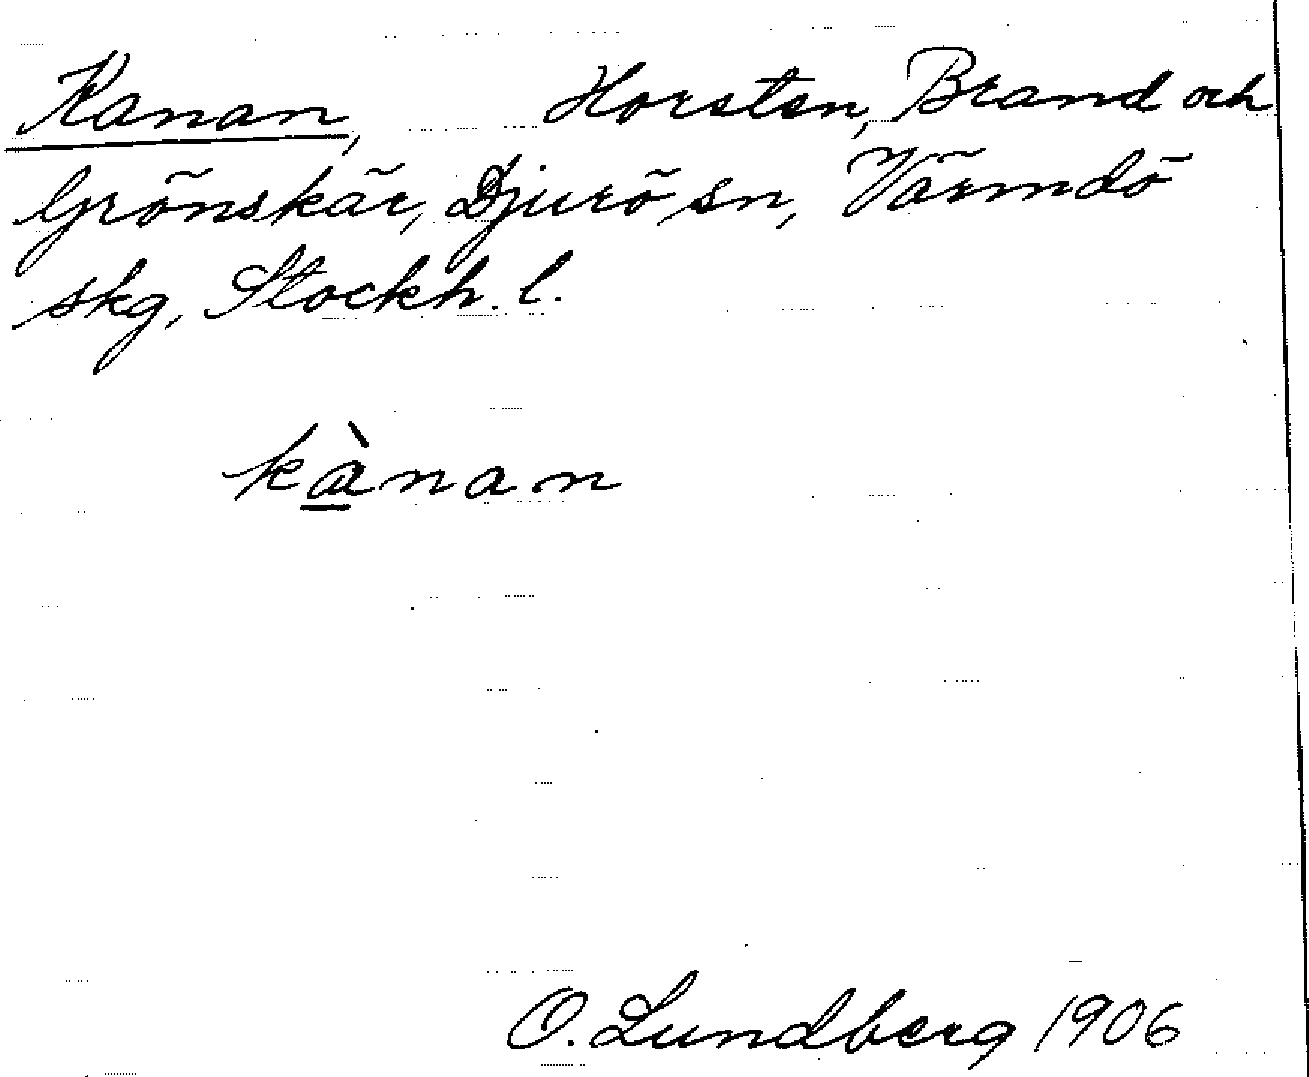 Kanan, Horsten, Brand och
Grönskär, Djurö sn, Värmdö
skg, Stockh. l.
kànan
O. Lundberg 1906